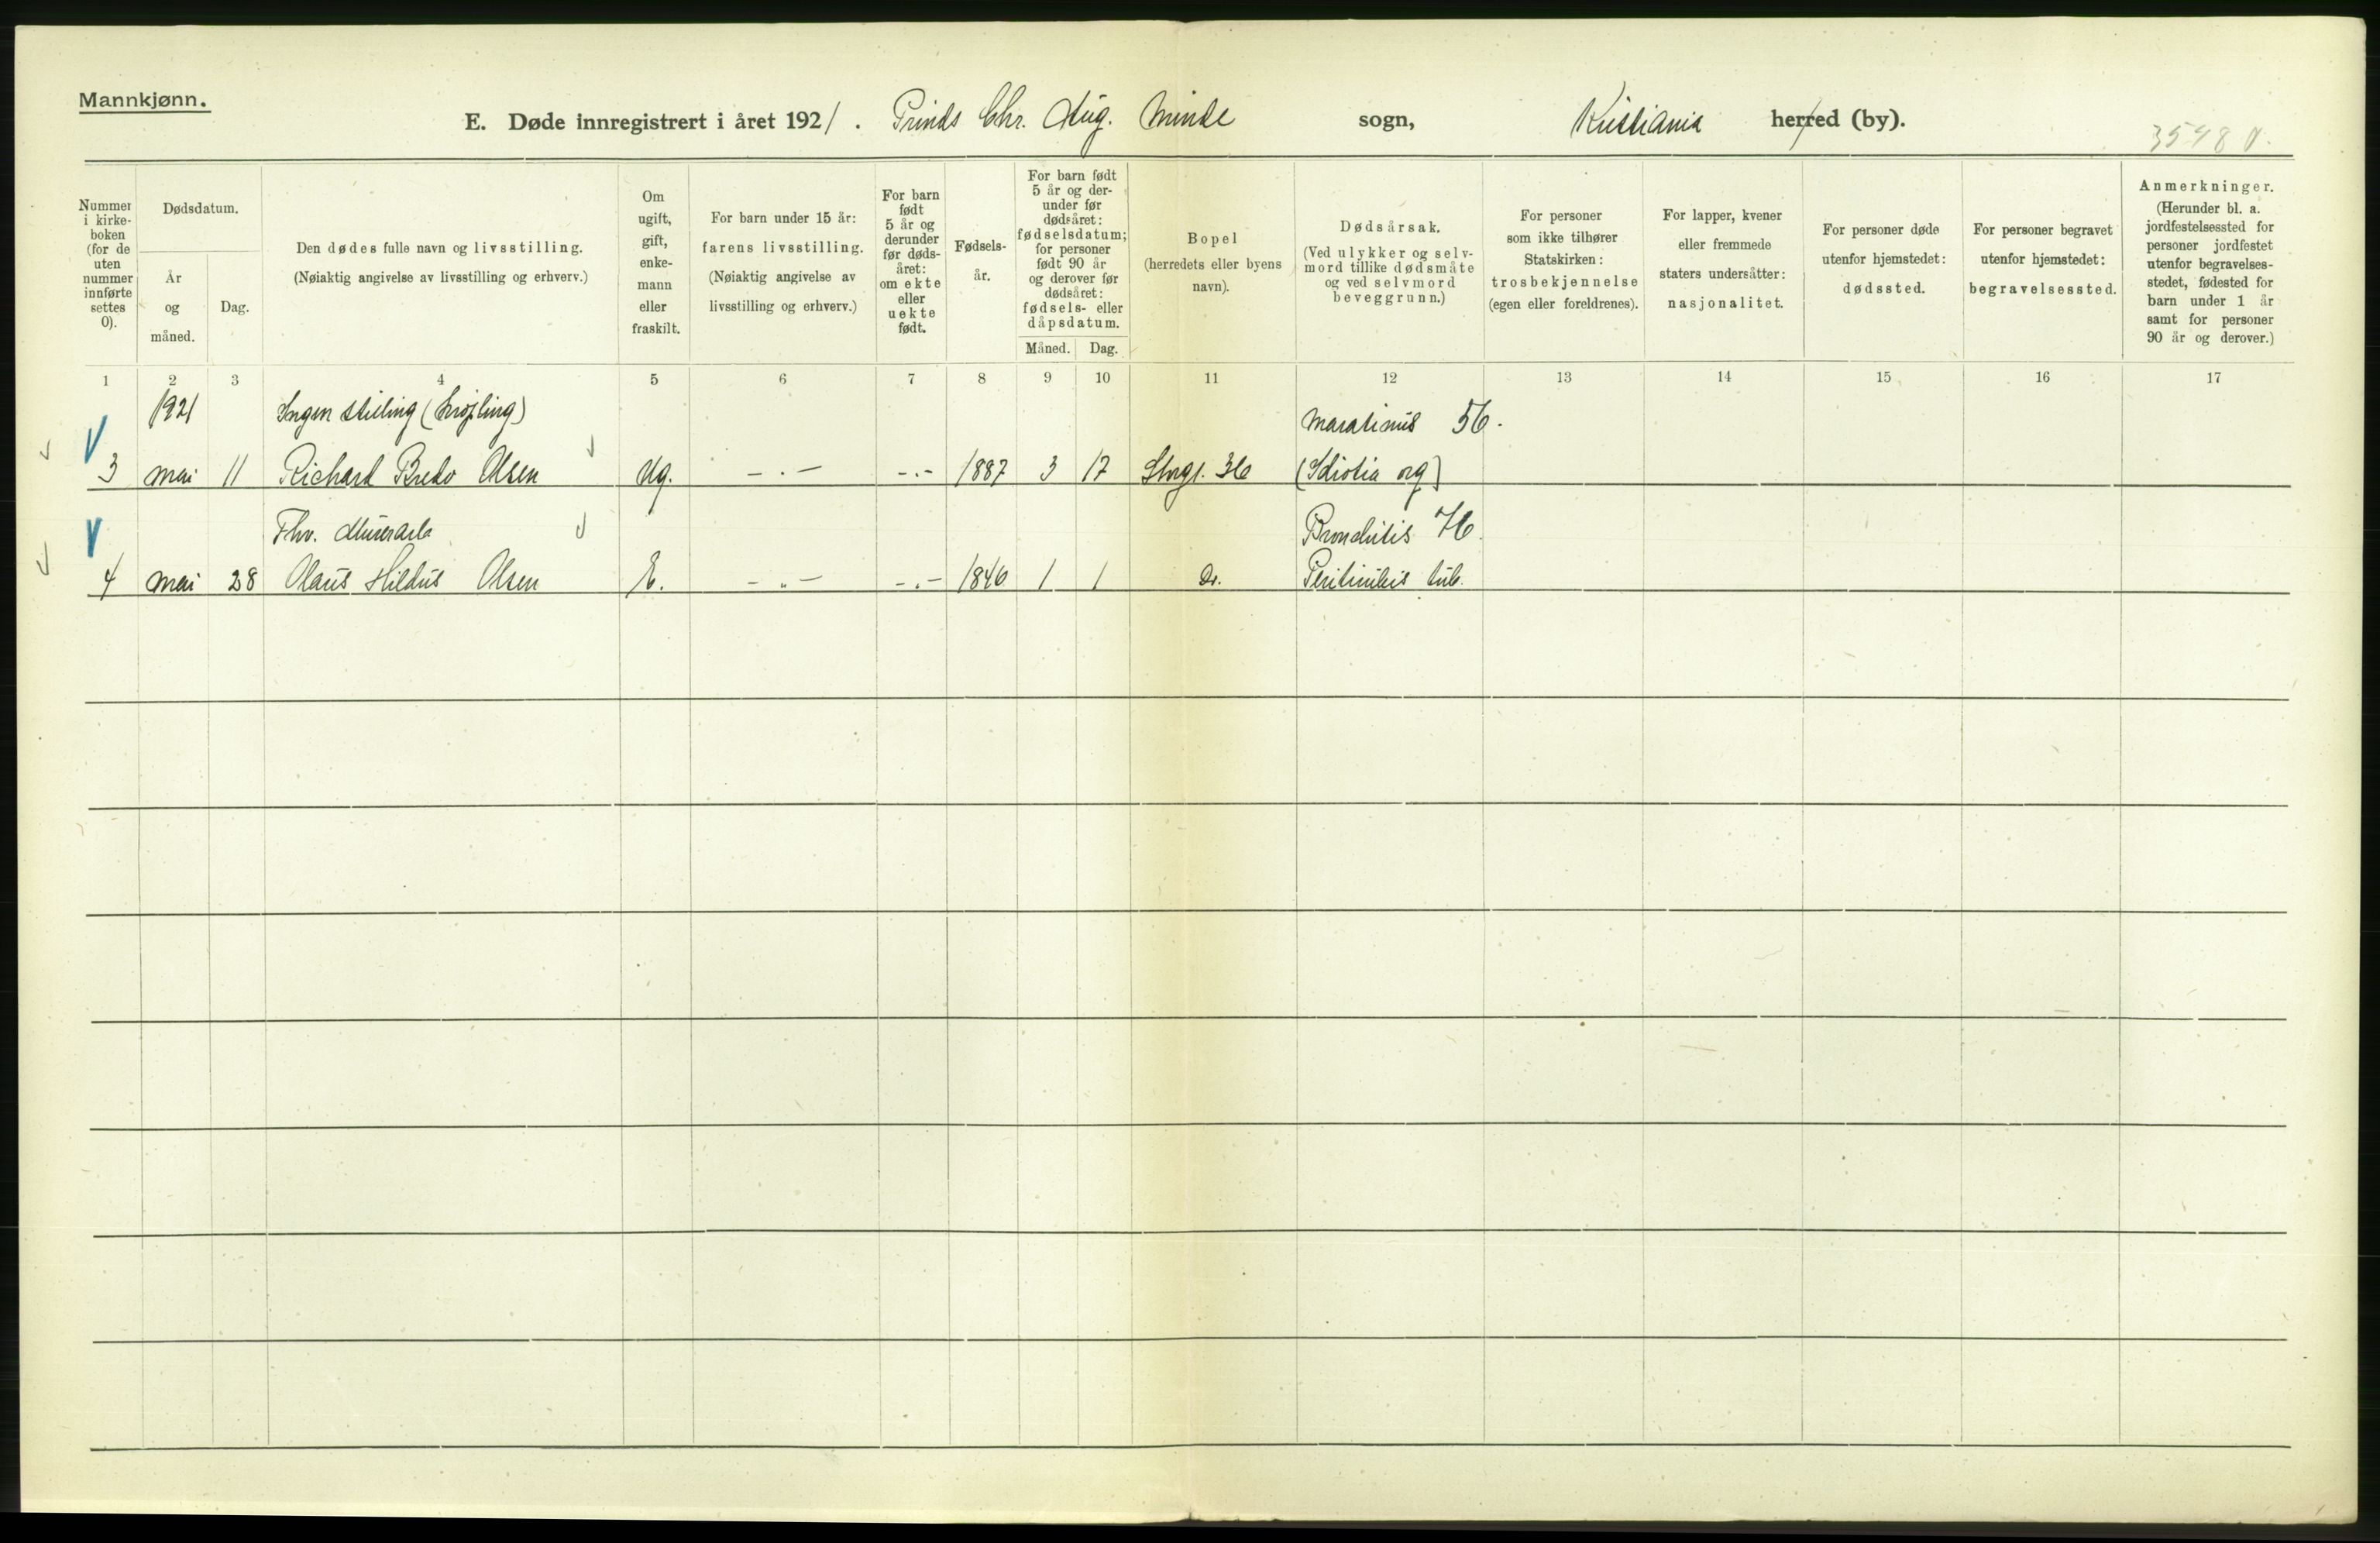 Mannkjønn.
E. Døde innregistrert i året 1921. Prinds Chr. Aug. Minde sogn, Kristiania herred (by).
3548
Nummer i kirke-boken (for de uten nummer innførte settes 0).
Dødsdatum.
År og måned.
Dag.
Den dødes fulle navn og livsstilling.
(Nøiaktig angivelse av livsstilling og erhverv.)
Om ugift, gift, enke-mann eller fraskilt.
For barn under 15 år:
farens livsstilling.
(Nøiaktig angivelse av livsstilling og erhverv.)
For barn født 5 år og derunder før døds-året: om ekte eller uekte født.
Fødsels-år.
For barn født 5 år og der-under før dødsåret: fødselsdatum; for personer født 90 år og derover før dødsåret: fødsels- eller dåpsdatum.
Måned. Dag.
Bopel
(herredets eller byens navn).
Dødsårsak.
(Ved ulykker og selv-mord tillike dødsmåte og ved selvmord beveggrunn.)
For personer som ikke tilhører Statskirken:
trosbekjennelse
(egen eller foreldrenes).
For lapper, kvener eller fremmede staters undersåtter:
nasjonalitet.
For personer døde utenfor hjemstedet:
dødssted.
For personer begravet utenfor hjemstedet:
begravelsessted.
Anmerkninger.
(Herunder bl. a. jordfestelsessted for personer jordfestet utenfor begravelses-stedet, fødested for barn under 1 år samt for personer 90 år og derover.)
1 2 3 4 5 6 7 8 9 10 11 12 13 14 15 16 17
1921 Ingen stilling (Krøpling) Marasimus 56.
3 mai 11 Richard Bredo Olsen Ug. - . - - . - 1887 3 17 Storgt. 36 (Idiotia og)
Fhv. Murerarb Bronchitis 76
4 mai 28 Olaus Hildus Olsen E. - „ - - . - 1846 1 1 Do. tub.